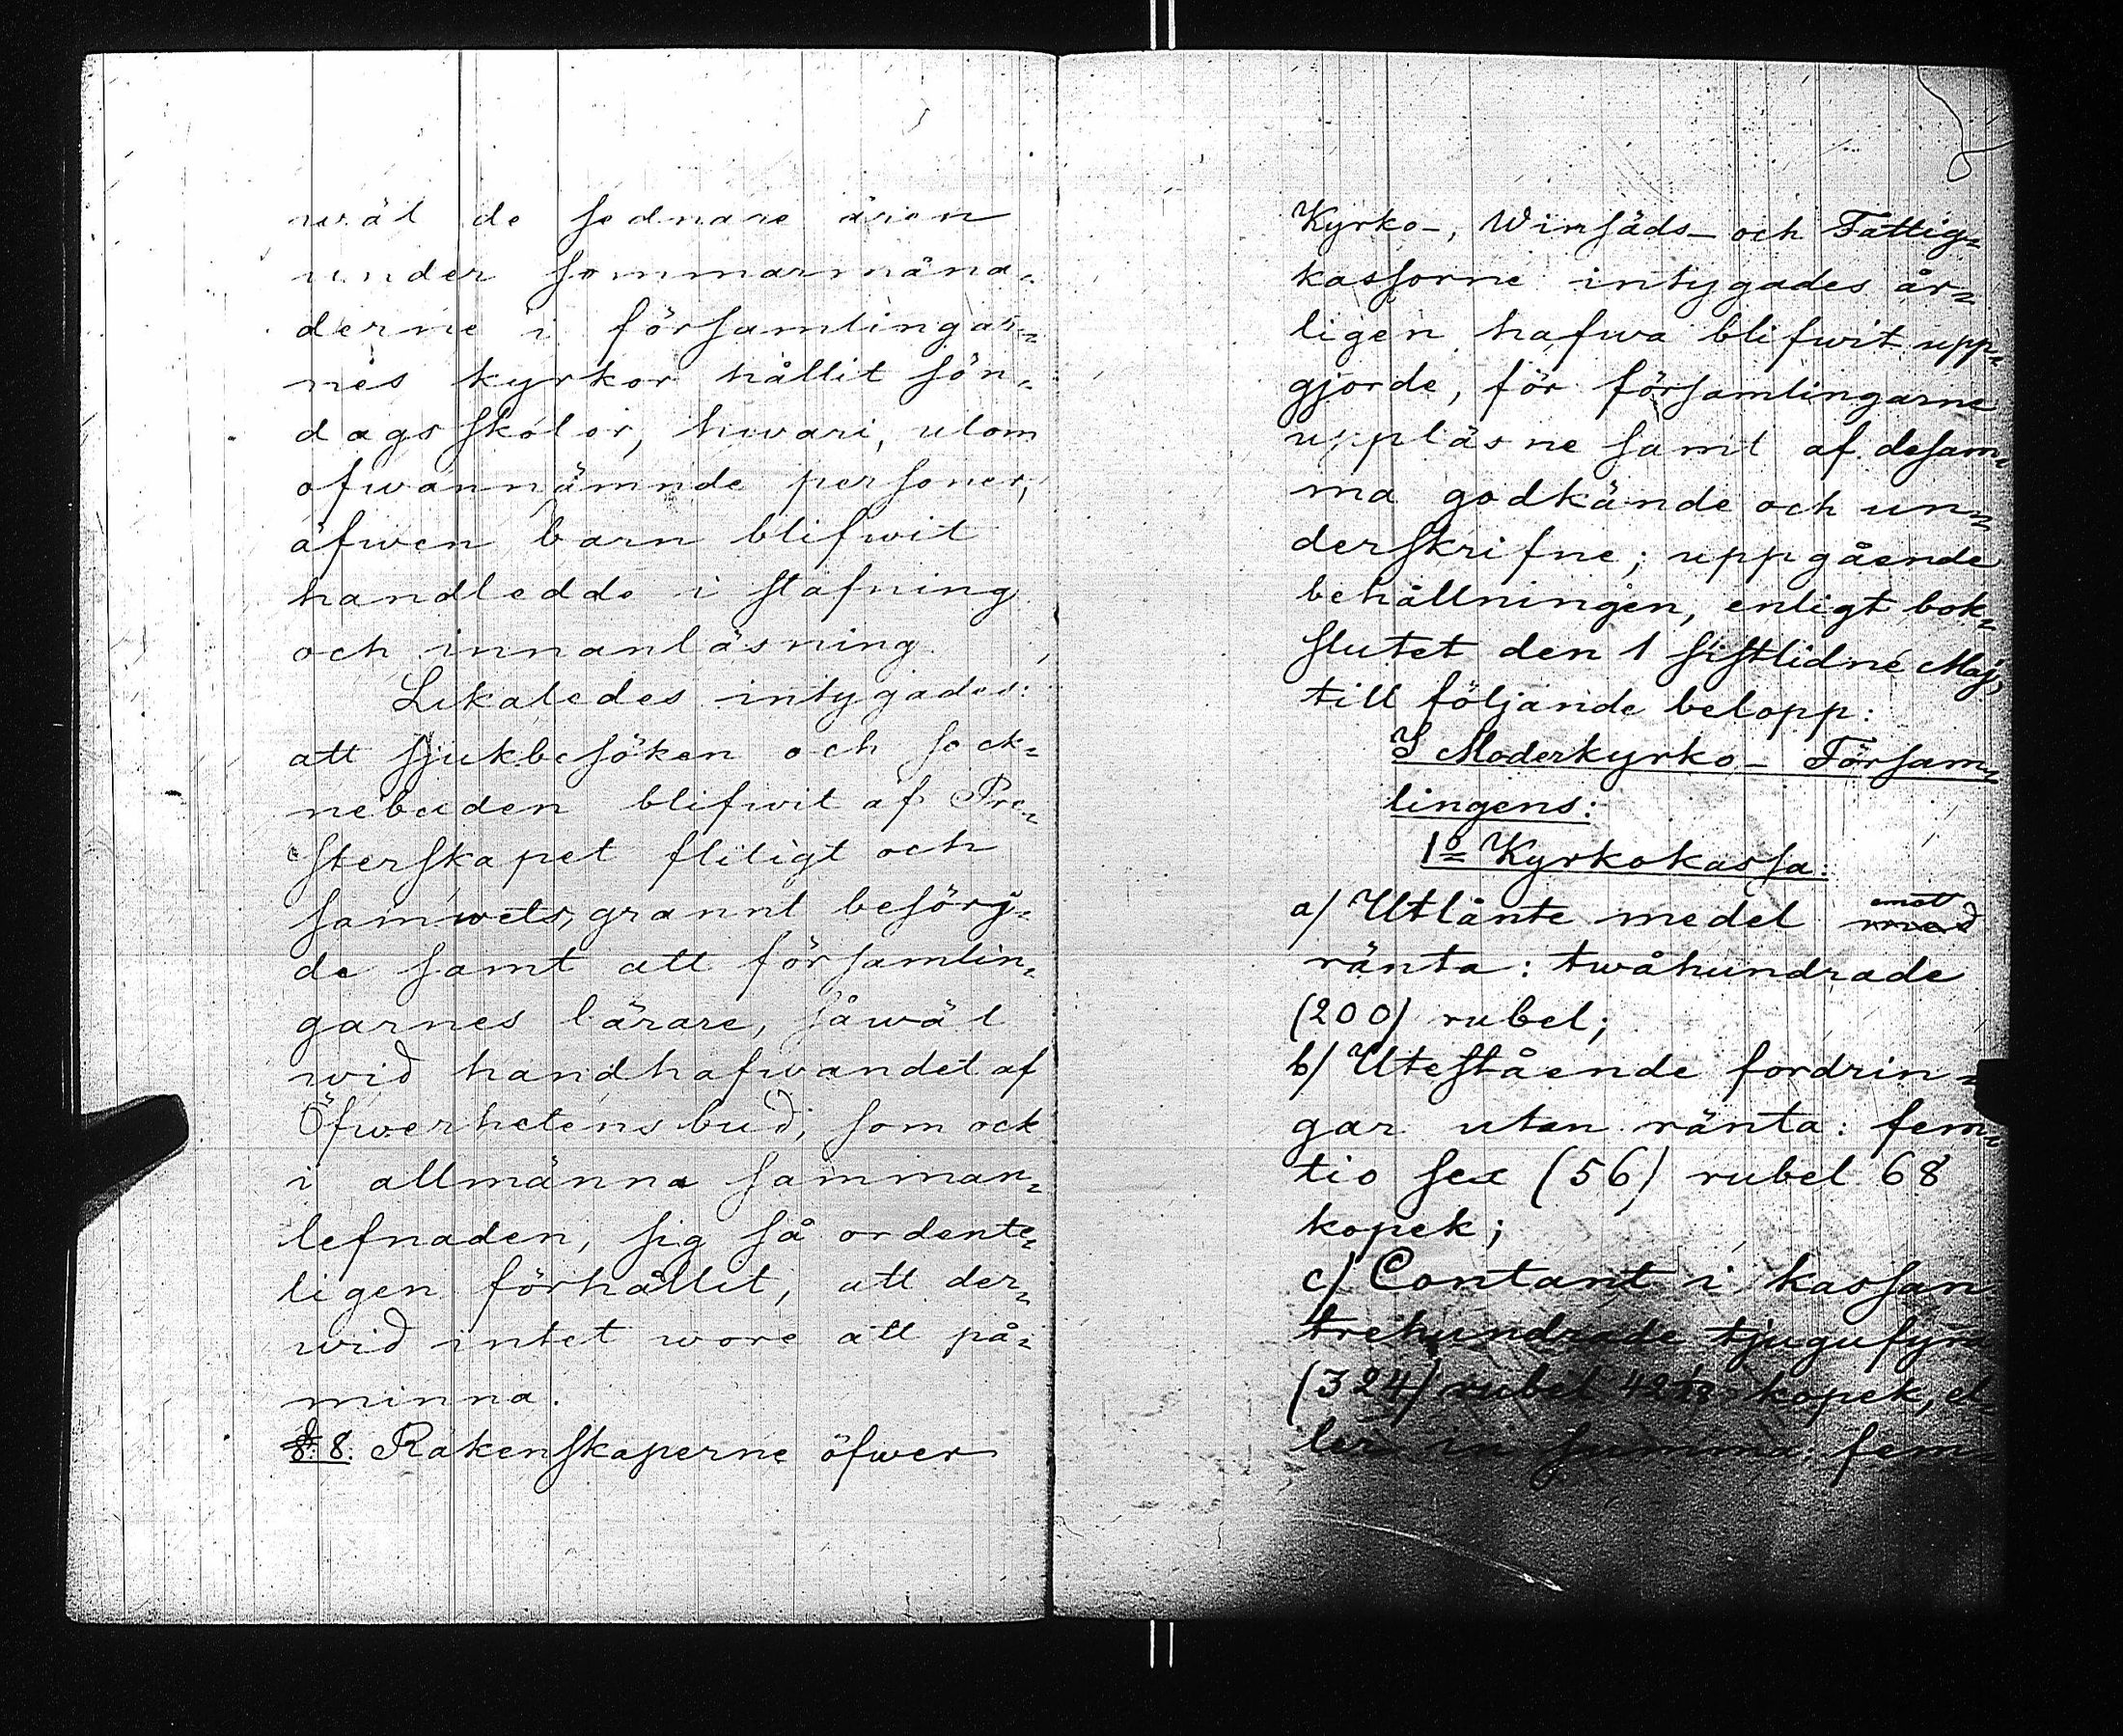 wäl de sednare åren
under sommarmåna-
derne i församlingar-
nes kyrkor hållit sön-
dagsskolor, hwari, utom
ofwannämnde personer,
äfwen barn blifwit
handledde i stafning
och innanläsning.
Likaledes intygades:
att sjukbesöken och sock-
nebuden blifwit af Pre-
sterskapet flitigt och
samwetsgrannt besörj-
de samt att församlin-
garnes lärare, såwäl
wid handhafwandet af
Öfwerhetens bud, som ock
i allmänna samman-
lefnaden, sig så ordente-
ligen förhållit, att der-
wid intet wore att på-
minna.
§. 8. Räkenskaperne öfwer
Kyrko-, Winsäds- och Fattig-
kassorne intygades år-
ligen hafwa blifwit upp-
gjorde, för församlingarne
uppläsne samt af desam-
ma godkände och un-
derskrifne; uppgående
behållningen, enligt bok-
slutet den 1 sistlidne Maj,
till följande belopp:
I Moderkyrko-Försam-
lingens:
1º Kyrkokassa:
a) Utlånte medel emot
ränta: twåhundrade
(200) rubel;
b) Utestående fordrin-
gar utan ränta: fem-
tio sex (56) rubel 68
kopek;
c) Contant i kassan
trehundrade tjugufyra
(324) rubel kopek, el-
ler in summa: fem-